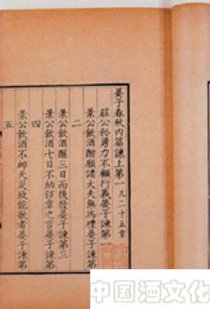 晏子春秋内篇諫上第一凡二十五章
莊公矜勇力不顧行義晏子諫第一
景公飲酒酣願諸大夫無為禮晏子諫第
二
景公飲酒酲三日而後發晏子諫第三
景公飲酒七日不納弦章之言晏子諫第
四
景公飲酒不卹天災致能歌者晏子諫第
五
中国酒文化